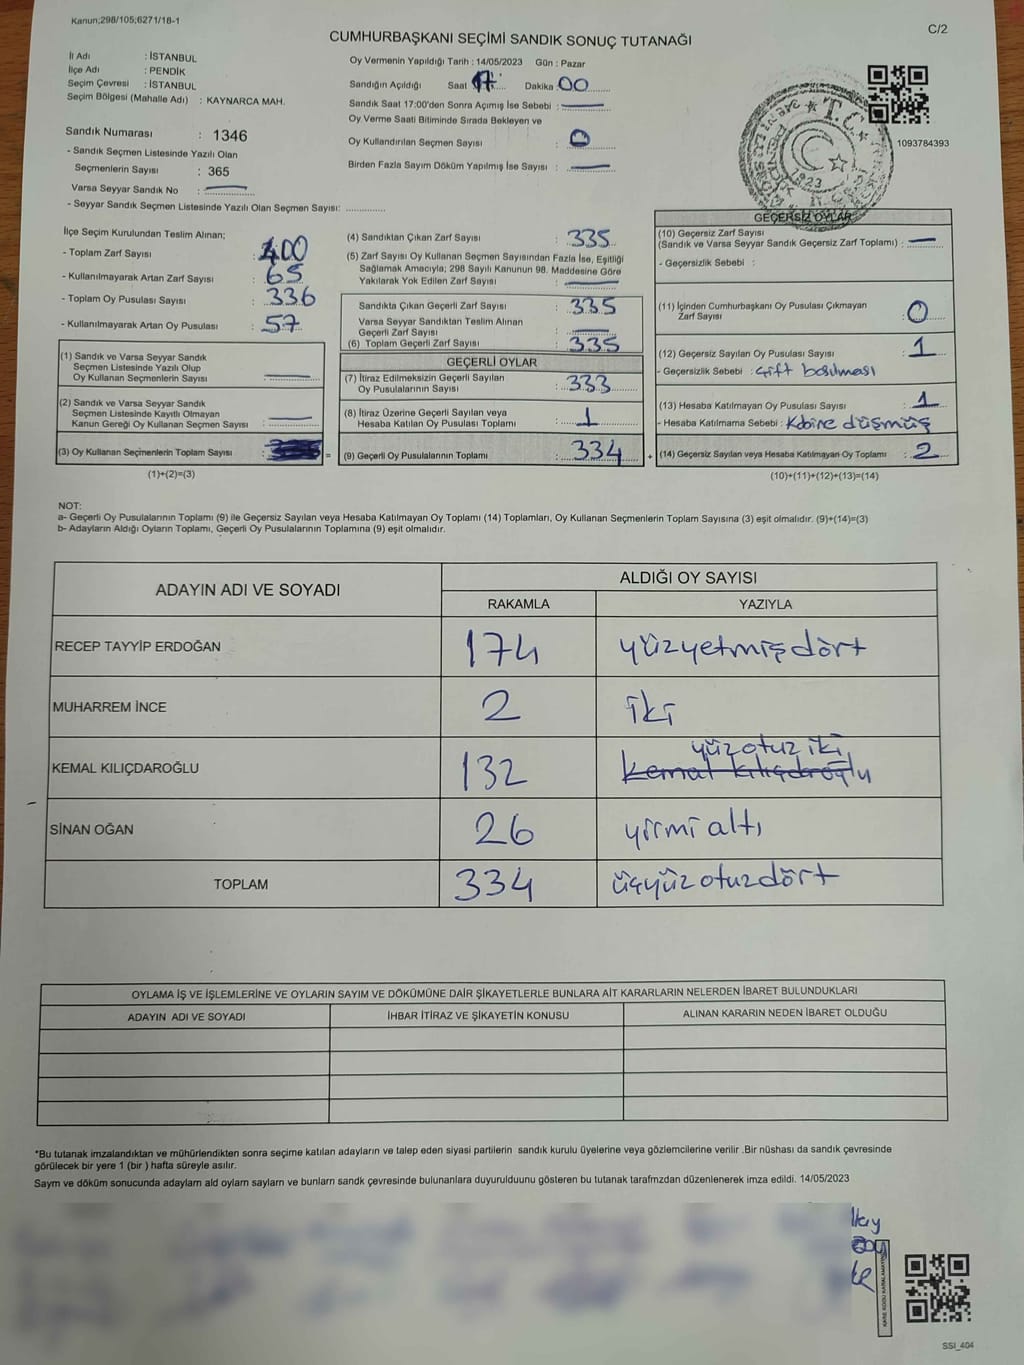 Kanun;298/105;6271/18-1
C/2
CUMHURBAŞKANI SEÇİMİ SANDIK SONUÇ TUTANAĞI
İl Adı : İSTANBUL
İlçe Adı : PENDİK
Seçim Çevresi : İSTANBUL
Seçim Bölgesi (Mahalle Adı) : KAYNARCA MAH.
Sandık Numarası : 1346
- Sandık Seçmen Listesinde Yazılı Olan
Seçmenlerin Sayısı : 365
Varsa Seyyar Sandık No :
- Seyyar Sandık Seçmen Listesinde Yazılı Olan Seçmen Sayısı:
Oy Vermenin Yapıldığı Tarih : 14/05/2023 Gün : Pazar
Sandığın Açıldığı Saat 17 Dakika 00
Sandık Saat 17:00'den Sonra Açımış İse Sebebi :
Oy Verme Saati Bitiminde Sırada Bekleyen ve
Oy Kullandırılan Seçmen Sayısı : 0
Birden Fazla Sayım Döküm Yapılmış İse Sayısı :
T.C.
1923
1093784393
İlçe Seçim Kurulundan Teslim Alınan;
- Toplam Zarf Sayısı : 400
- Kullanılmayarak Artan Zarf Sayısı : 65
- Toplam Oy Pusulası Sayısı : 336
- Kullanılmayarak Artan Oy Pusulası : 57
(1) Sandık ve Varsa Seyyar Sandık
Seçmen Listesinde Yazılı Olup
Oy Kullanan Seçmenlerin Sayısı :
(2) Sandık ve Varsa Seyyar Sandık
Seçmen Listesinde Kayıtlı Olmayan
Kanun Gereği Oy Kullanan Seçmen Sayısı :
(3) Oy Kullanan Seçmenlerin Toplam Sayısı : =
(1)+(2)=(3)
(4) Sandıktan Çıkan Zarf Sayısı : 335
(5) Zarf Sayısı Oy Kullanan Seçmen Sayısından Fazla İse, Eşitliği
Sağlamak Amacıyla; 298 Sayılı Kanunun 98. Maddesine Göre
Yakılarak Yok Edilen Zarf Sayısı :
Sandıkta Çıkan Geçerli Zarf Sayısı : 335
Varsa Seyyar Sandıktan Teslim Alınan
Geçerli Zarf Sayısı :
(6) Toplam Geçerli Zarf Sayısı : 335
GEÇERLİ OYLAR
(7) İtiraz Edilmeksizin Geçerli Sayılan
Oy Pusulalarının Sayısı : 333
(8) İtiraz Üzerine Geçerli Sayılan veya
Hesaba Katılan Oy Pusulası Toplamı : 1
(9) Geçerli Oy Pusulalarının Toplamı : 334 +
GEÇERSİZ OYLAR
(10) Geçersiz Zarf Sayısı
(Sandık ve Varsa Seyyar Sandık Geçersiz Zarf Toplamı) :
- Geçersizlik Sebebi :
(11) İçinden Cumhurbaşkanı Oy Pusulası Çıkmayan
Zarf Sayısı : 0
(12) Geçersiz Sayılan Oy Pusulası Sayısı : 1
- Geçersizlik Sebebi : Çift basılması
(13) Hesaba Katılmayan Oy Pusulası Sayısı : 1
- Hesaba Katılmama Sebebi : Kabine düşmüş
(14) Geçersiz Sayılan veya Hesaba Katılmayan Oy Toplamı : 2
(10)+(11)+(12)+(13)=(14)
NOT:
a- Geçerli Oy Pusulalarının Toplamı (9) ile Geçersiz Sayılan veya Hesaba Katılmayan Oy Toplamı (14) Toplamları, Oy Kullanan Seçmenlerin Toplam Sayısına (3) eşit olmalıdır. (9)+(14)=(3)
b- Adayların Aldığı Oyların Toplamı, Geçerli Oy Pusulalarının Toplamına (9) eşit olmalıdır.
ADAYIN ADI VE SOYADI
ALDIĞI OY SAYISI
RAKAMLA YAZIYLA
RECEP TAYYİP ERDOĞAN 174 yüzyetmişdört
MUHARREM İNCE 2 iki
yüzotuz iki
KEMAL KILIÇDAROĞLU 132 kemal kılıçdaroğlu
SİNAN OĞAN 26 yirmi altı
TOPLAM 334 üçyüzotuzdört
OYLAMA İŞ VE İŞLEMLERİNE VE OYLARIN SAYIM VE DÖKÜMÜNE DAİR ŞİKAYETLERLE BUNLARA AİT KARARLARIN NELERDEN İBARET BULUNDUKLARI
ADAYIN ADI VE SOYADI İHBAR İTİRAZ VE ŞİKAYETİN KONUSU ALINAN KARARIN NEDEN İBARET OLDUĞU
*Bu tutanak imzalandıktan ve mühürlendikten sonra seçime katılan adayların ve talep eden siyasi partilerin sandık kurulu üyelerine veya gözlemcilerine verilir .Bir nüshası da sandık çevresinde
görülecek bir yere 1 (bir ) hafta süreyle asılır.
Saym ve döküm sonucunda adaylarn ald oylarn saylarn ve bunlarn sandk çevresinde bulunanlara duyurulduunu gösteren bu tutanak tarafmzdan düzenlenerek imza edildi. 14/05/2023
SSI_404